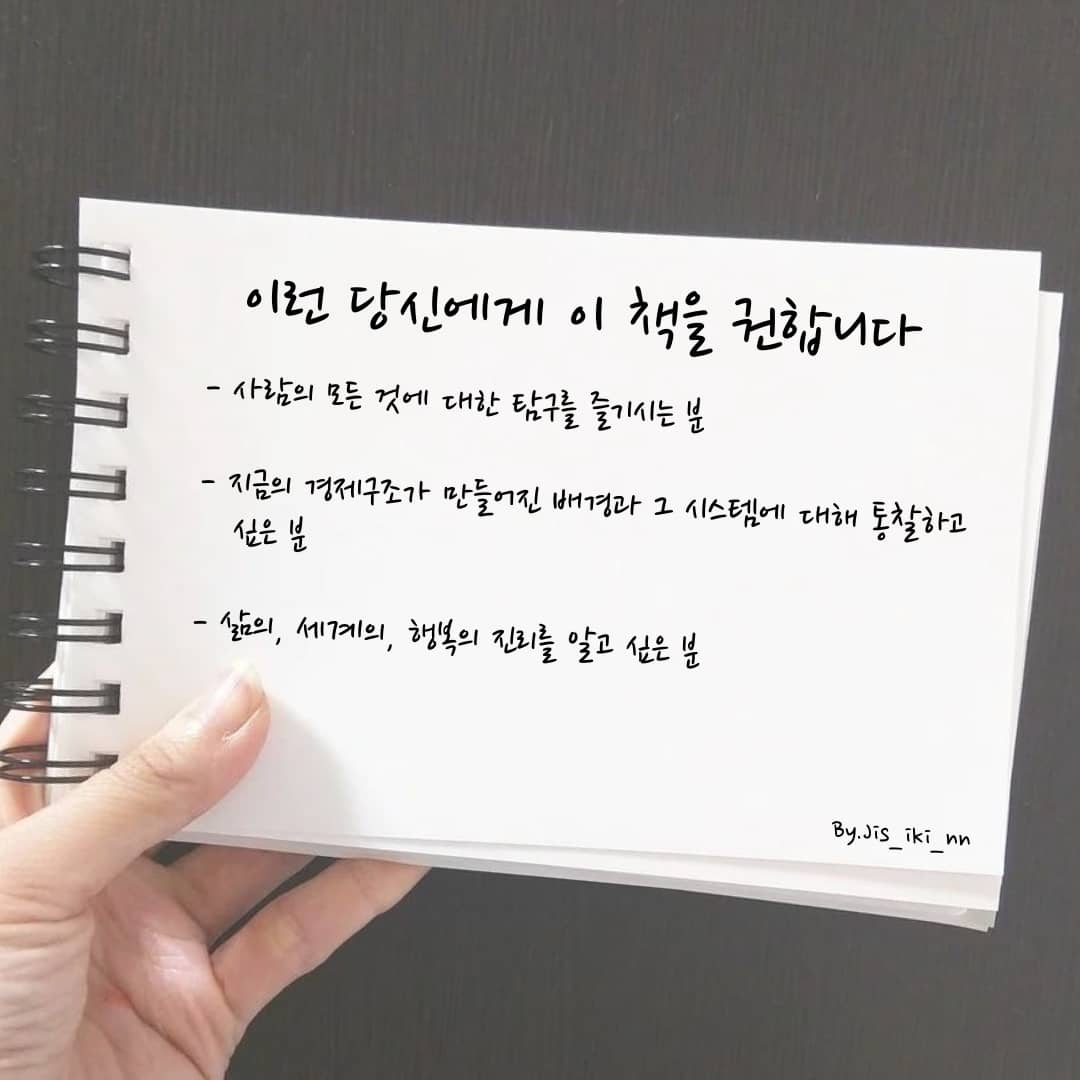 이런 당신에게 이 책을 권합니다
- 사람의 모든 것에 대한 탐구를 즐기시는 분
- 지금의 경제구조가 만들어진 배경과 그 시스템에 대해 통찰하고
싶은 분
- 삶의, 세계의, 행복의 진리를 알고 싶은 분
By.Jis_iki_nn